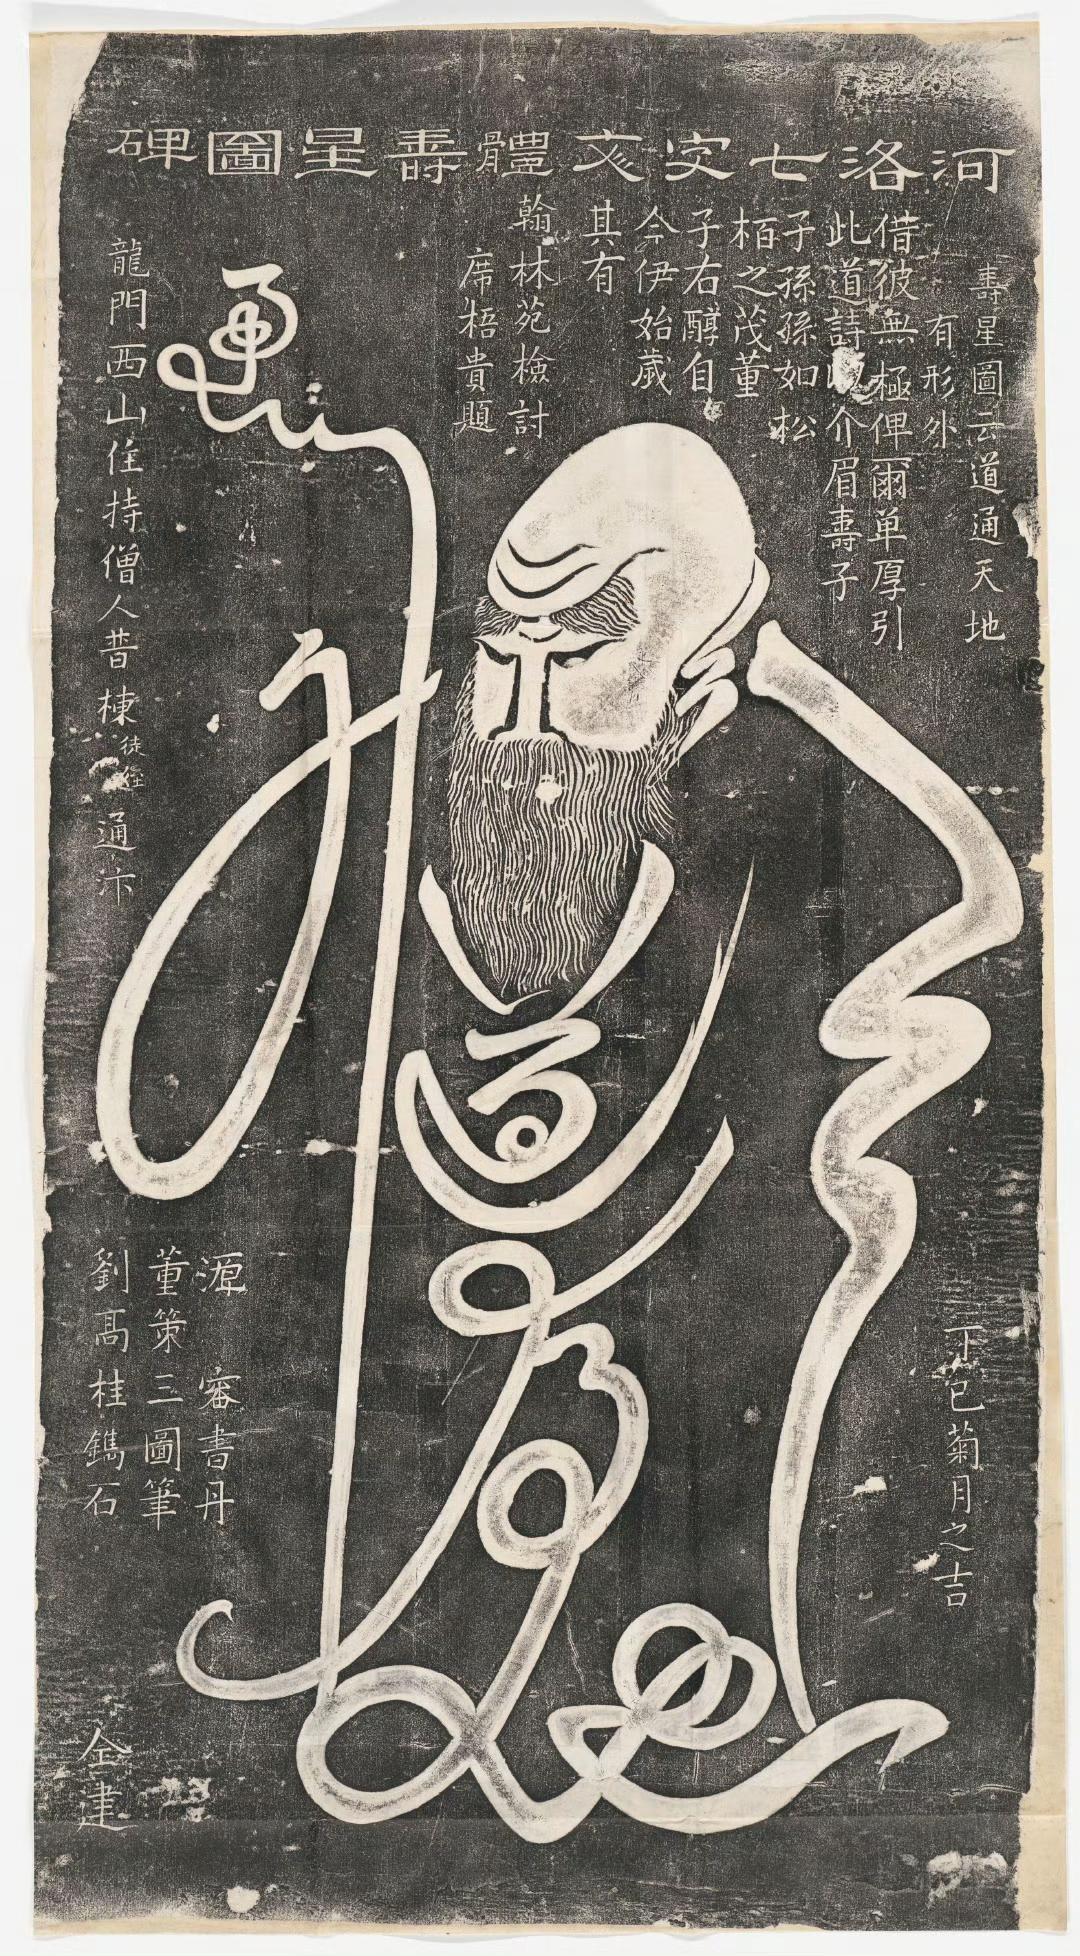 河洛七安亥體壽星圖碑
壽星圖云道通天地
有形外
借彼無極俾爾單厚引
此道詩介眉壽子
子孫孫如松
栢之茂董
子右醇自
今伊始歲
其有
翰林苑檢討
席梧貴題
龍門西山住持僧人普棟徒侄通汴
丁巳菊月之吉
源審書丹
董策三圖筆
劉高桂鐫石
仝建